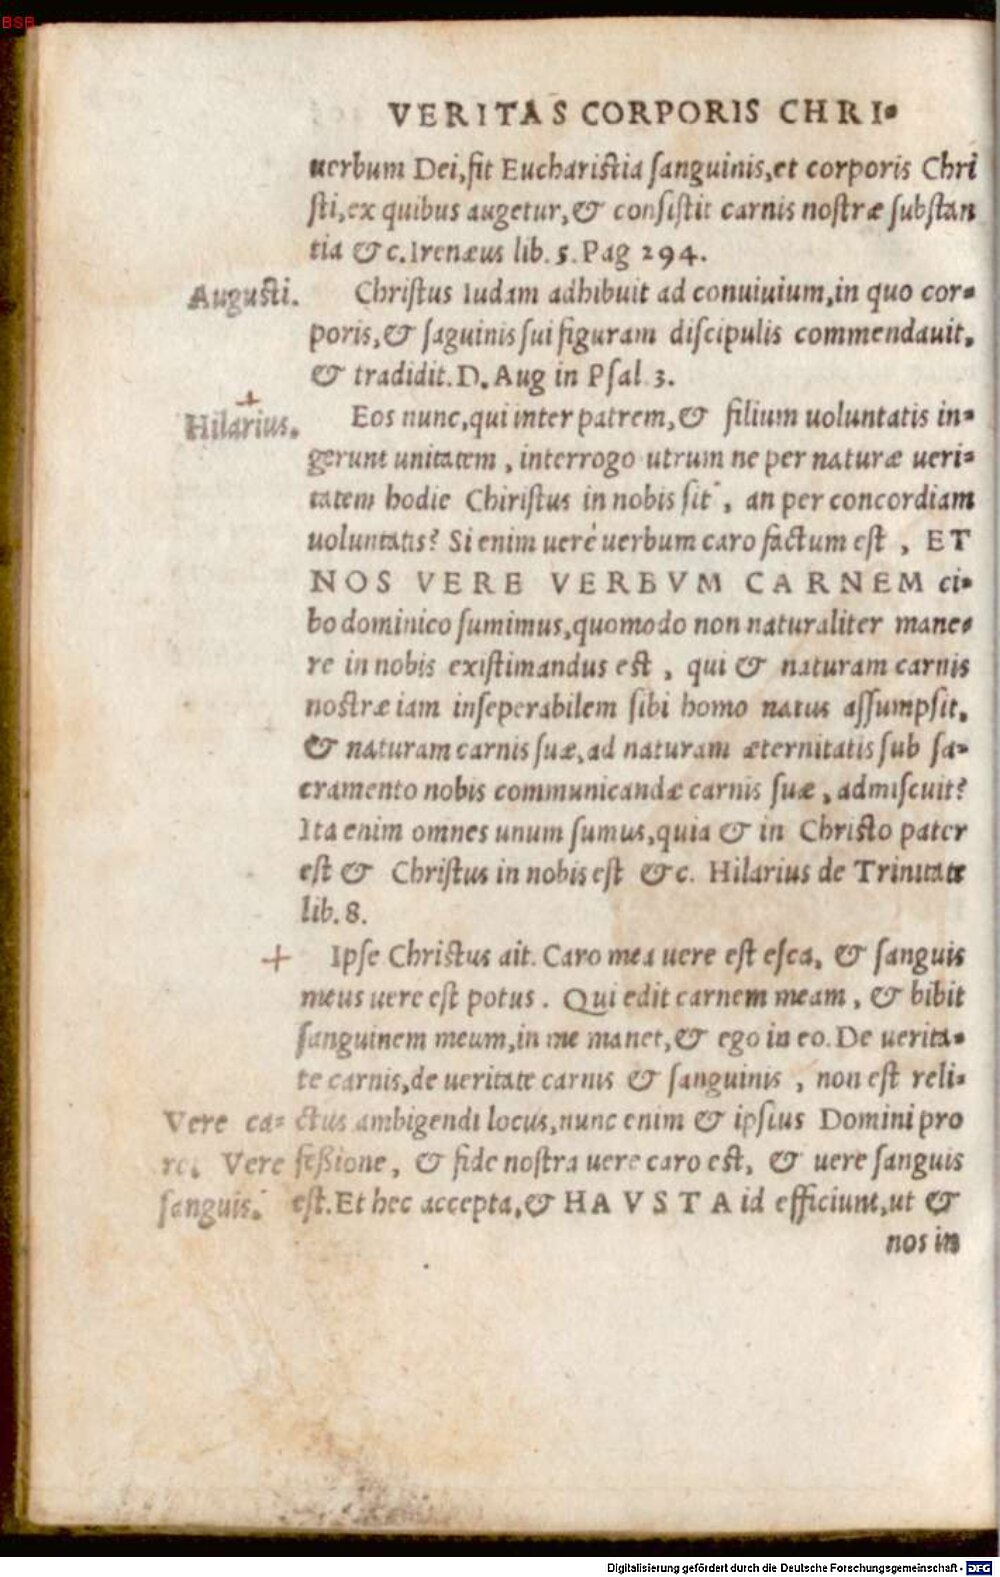 BSB
VERITAS CORPORIS CHRI-
uerbum Dei, fit Eucharistia sanguinis, et corporis Chri
sti, ex quibus augetur, & consistit carnis nostræ substan
tia &c. Irenæus lib. 5. Pag 294.
Augusti.
Christus Iudam adhibuit ad conuiuium, in quo cor-
poris, & saguinis sui figuram discipulis commendauit,
& tradidit. D. Aug in Psal 3.
+
Hilarius.
Eos nunc, qui inter patrem, & filium uoluntatis in-
gerunt unitatem, interrogo utrum ne per naturæ ueri-
tatem hodie Chiristus in nobis sit, an per concordiam
uoluntatis? Si enim uerè uerbum caro factum est, ET
NOS VERE VERBVM CARNEM ci-
bo dominico sumimus, quomodo non naturaliter mane-
re in nobis existimandus est, qui & naturam carnis
nostræ iam inseperabilem sibi homo natus assumpsit,
& naturam carnis suæ, ad naturam æternitatis sub sa-
cramento nobis communicandæ carnis suæ, admiscuit?
Ita enim omnes unum sumus, quia & in Christo pater
est & Christus in nobis est &c. Hilarius de Trinitate
lib. 8.
+
Ipse Christus ait. Caro mea uere est esca, & sanguis
meus uere est potus. Qui edit carnem meam, & bibit
sanguinem meum, in me manet, & ego in eo. De uerita-
te carnis, de ueritate carnis & sanguinis, non est reli-
Vere ca-
ro. Vere
sanguis.
ctus ambigendi locus, nunc enim & ipsius Domini pro
feßione, & fide nostra uere caro est, & uere sanguis
est. Et hec accepta, & HAVSTA id efficiunt, ut &
nos in
Digitalisierung gefördert durch die Deutsche Forschungsgemeinschaft - DFG